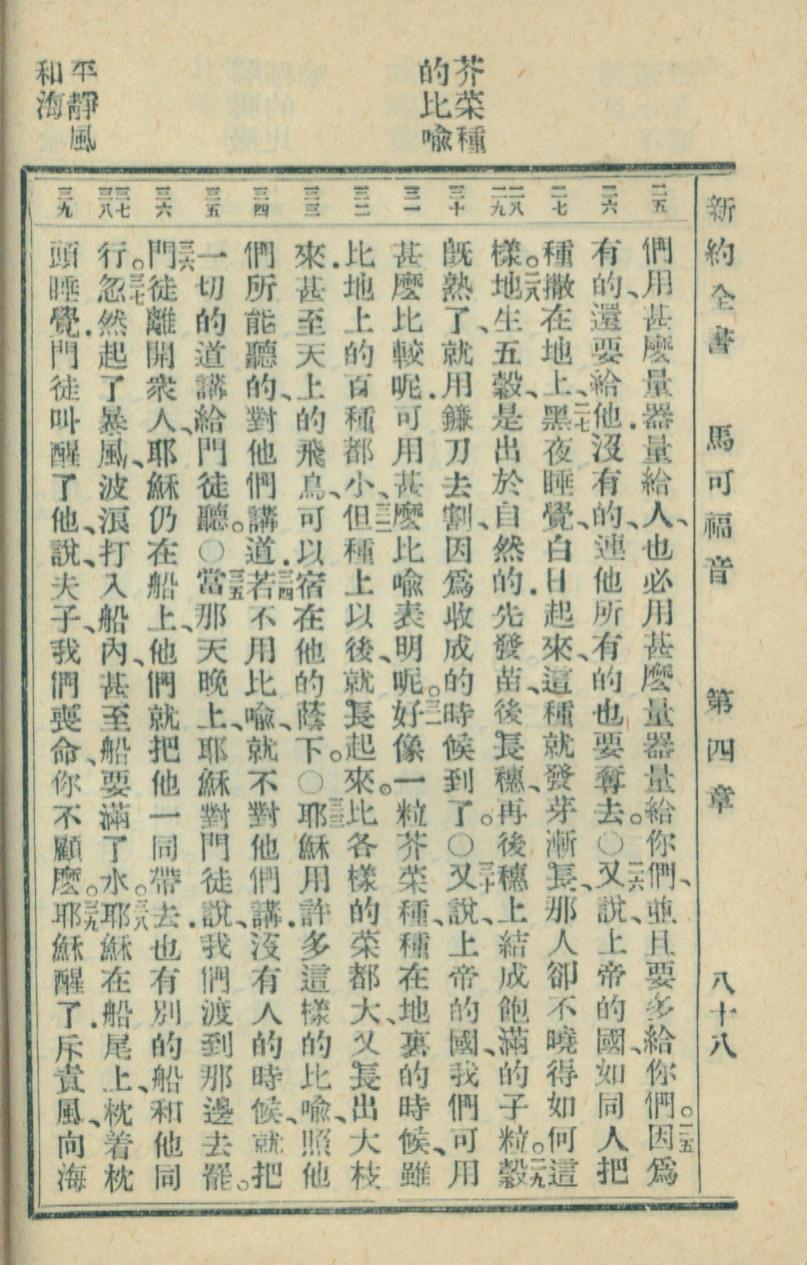 新約全書 馬可福音 第四章 八十八
芥菜種
的比喻
平靜風
和海
二五
二六
二七
二八 二九
三十
三一
三二
三三
三四
三五
三六
三七 三八
三九
們用甚麼量器量給人、也必用甚麼量器量給你們、並且要多給你們。二五因爲
有的、還要給他.沒有的、連他所有的也要奪去。〇二六又說、上帝的國、如同人把
種撒在地上、二七黑夜睡覺、白日起來、這種就發芽漸長、那人卻不曉得如何這
樣。二八地生五穀、是出於自然的.先發苗、後長穗、再後穗上結成飽滿的子粒。二九穀
旣熟了、就用鐮刀去割、因爲收成的時候到了。〇三十又說、上帝的國、我們可用
甚麼比較呢.可用甚麼比喻表明呢。三一好像一粒芥菜種、種在地裏的時候、雖
比地上的百種都小、三二但種上以後、就長起來。比各樣的菜都大、又長出大枝
來.甚至天上的飛鳥、可以宿在他的蔭下。〇三三耶穌用許多這樣的比喻、照他
們所能聽的、對他們講道.三四若不用比喻、就不對他們講.沒有人的時候、就把
一切的道講給門徒聽。〇三五當那天晚上、耶穌對門徒說.我們渡到那邊去罷。
三六門徒離開衆人、耶穌仍在船上、他們就把他一同帶去.也有別的船和他同
行。三七忽然起了暴風、波浪打入船內、甚至船要滿了水。三八耶穌在船尾上、枕着枕
頭睡覺.門徒叫醒了他、說、夫子、我們喪命、你不顧麼。三九耶穌醒了.斥責風、向海